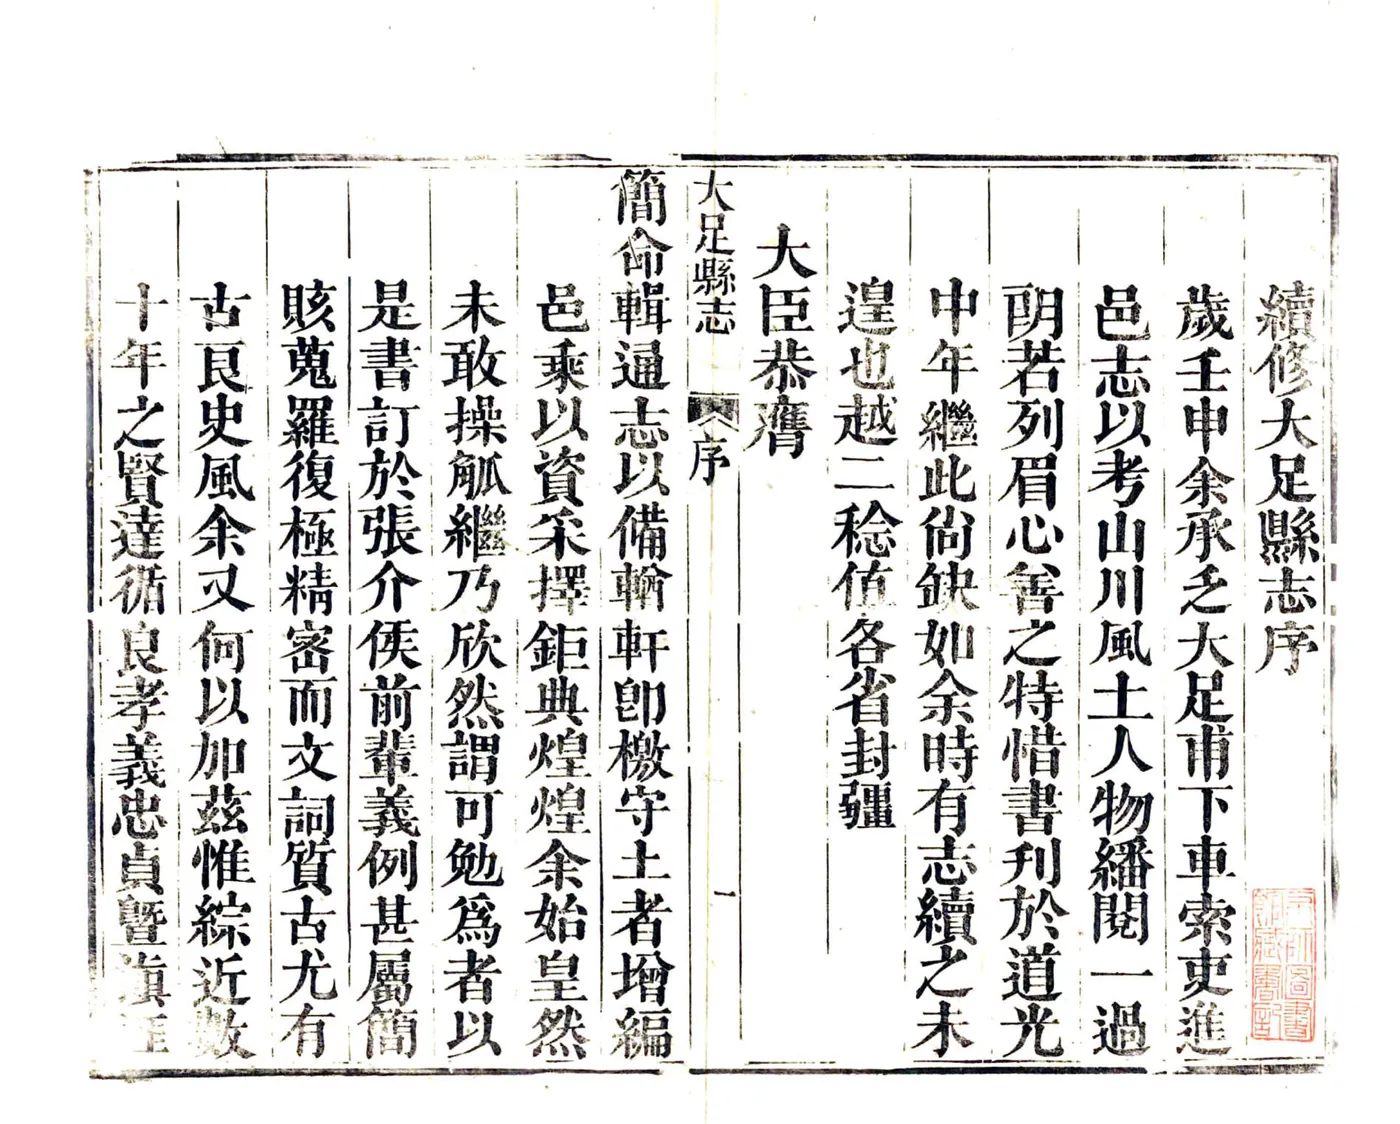 續修大足縣志序
歲壬申余承乏大足甫下車索吏進
邑志以考山川風土人物繙閱一過
朗若列眉心善之特惜書刋於道光
中年繼此尙缺如余時有志續之未
遑也越二稔値各省封疆
大臣恭膺
大足縣志 序 一
簡命輯通志以備輶軒卽檄守土者增編
邑乘以資采擇鉅典煌煌余始皇然
未敢操觚繼乃欣然謂可勉爲者以
是書訂於張介侯前輩義例甚屬簡
賅蒐羅復極精密而文詞質古尤有
古良史風余又何以加茲惟綜近數
十年之賢達循良孝義忠貞暨旗